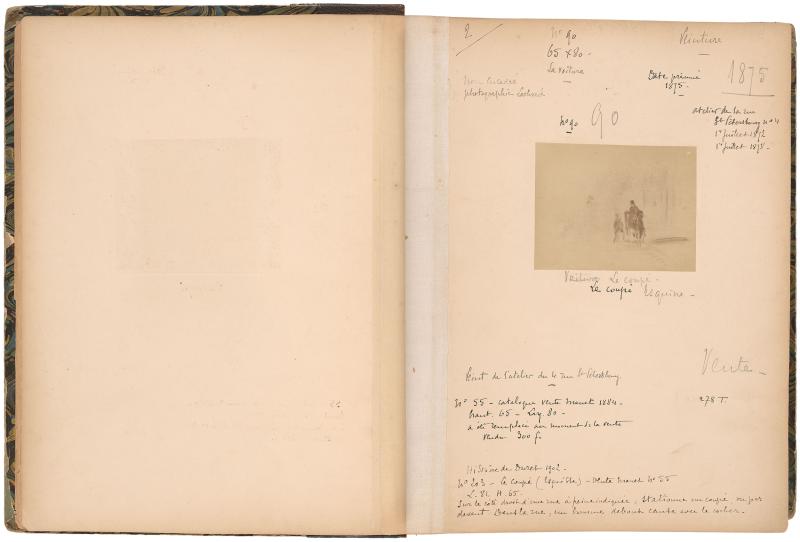 2
Nº 90
65 x 80 -
La voiture
Peinture
Date présumée
1875 -
1875
photographie Lochard
Nº 90
90
atelier de la rue
St Pétersbourg nº 4
1er juillet 1872
1er juillet 1878 -
Voiture Le coupé -
Le coupé Esquisse -
Vente -
de l'atelier du 4 rue St Pétersbourg
Nº 55 - catalogue vente Manet 1884 -
haut. 65 - Larg. 80 -
a été remplacé au moment de la vente
vendu 300 f.
278 T
Histoire de Duret 1902 -
Nº 203 - Le coupé (Esquisse) - Vente Manet Nº 55
L. 81 H. 65 -
Sur le côté droit d'une rue à peine indiquée, stationne un coupé, vu par
devant. Dans la rue, un homme debout cause avec le cocher -